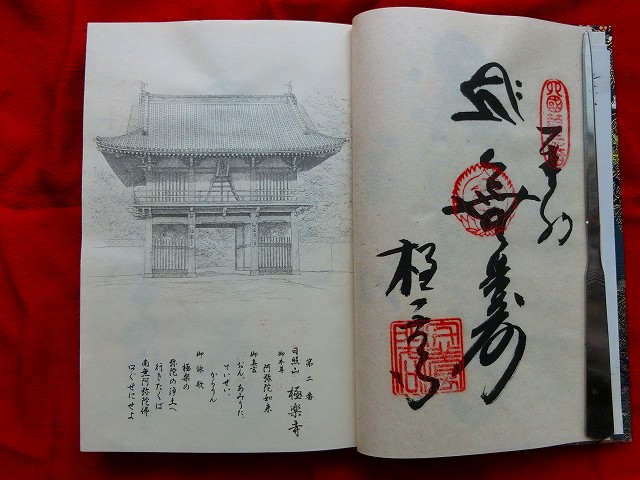 第二番
日照山 極楽寺
御本尊
阿弥陀如来
御真言
おん、あみりた、
ていせい、
からうん
御詠歌
極楽の
弥陀の浄土へ
行きたくば
南無阿弥陀佛
口ぐせにせよ
奉納
無量寿
極楽寺